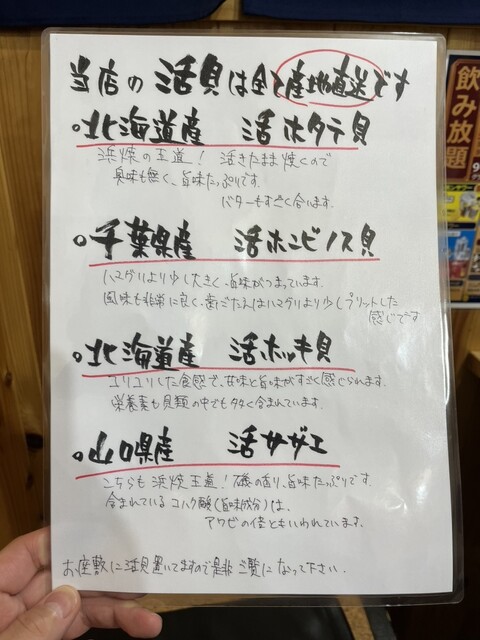 当店の活貝は全て産地直送です
北海道産 活ホタテ貝
浜焼の王道! 活きたまま焼くので
臭味も無く、旨味たっぷりです。
バターもすごく合います。
千葉県産 活ホンビノス貝
ハマグリより少し大きく、旨味がつまっています。
風味も非常に良く、歯ごたえはハマグリより少しプリットした
感じです
北海道産 活ホッキ貝
コリコリした食感で、甘味と旨味がすごく感じられます。
栄養素も貝類の中でも多く含まれています。
山口県産 活サザエ
こちらも浜焼王道! 磯の香り、旨味たっぷりです。
含まれているコハク酸(旨味成分)は、
アワビの倍ともいわれています。
お座敷に活貝置いてますので是非ご覧になって下さい。
飲み放題